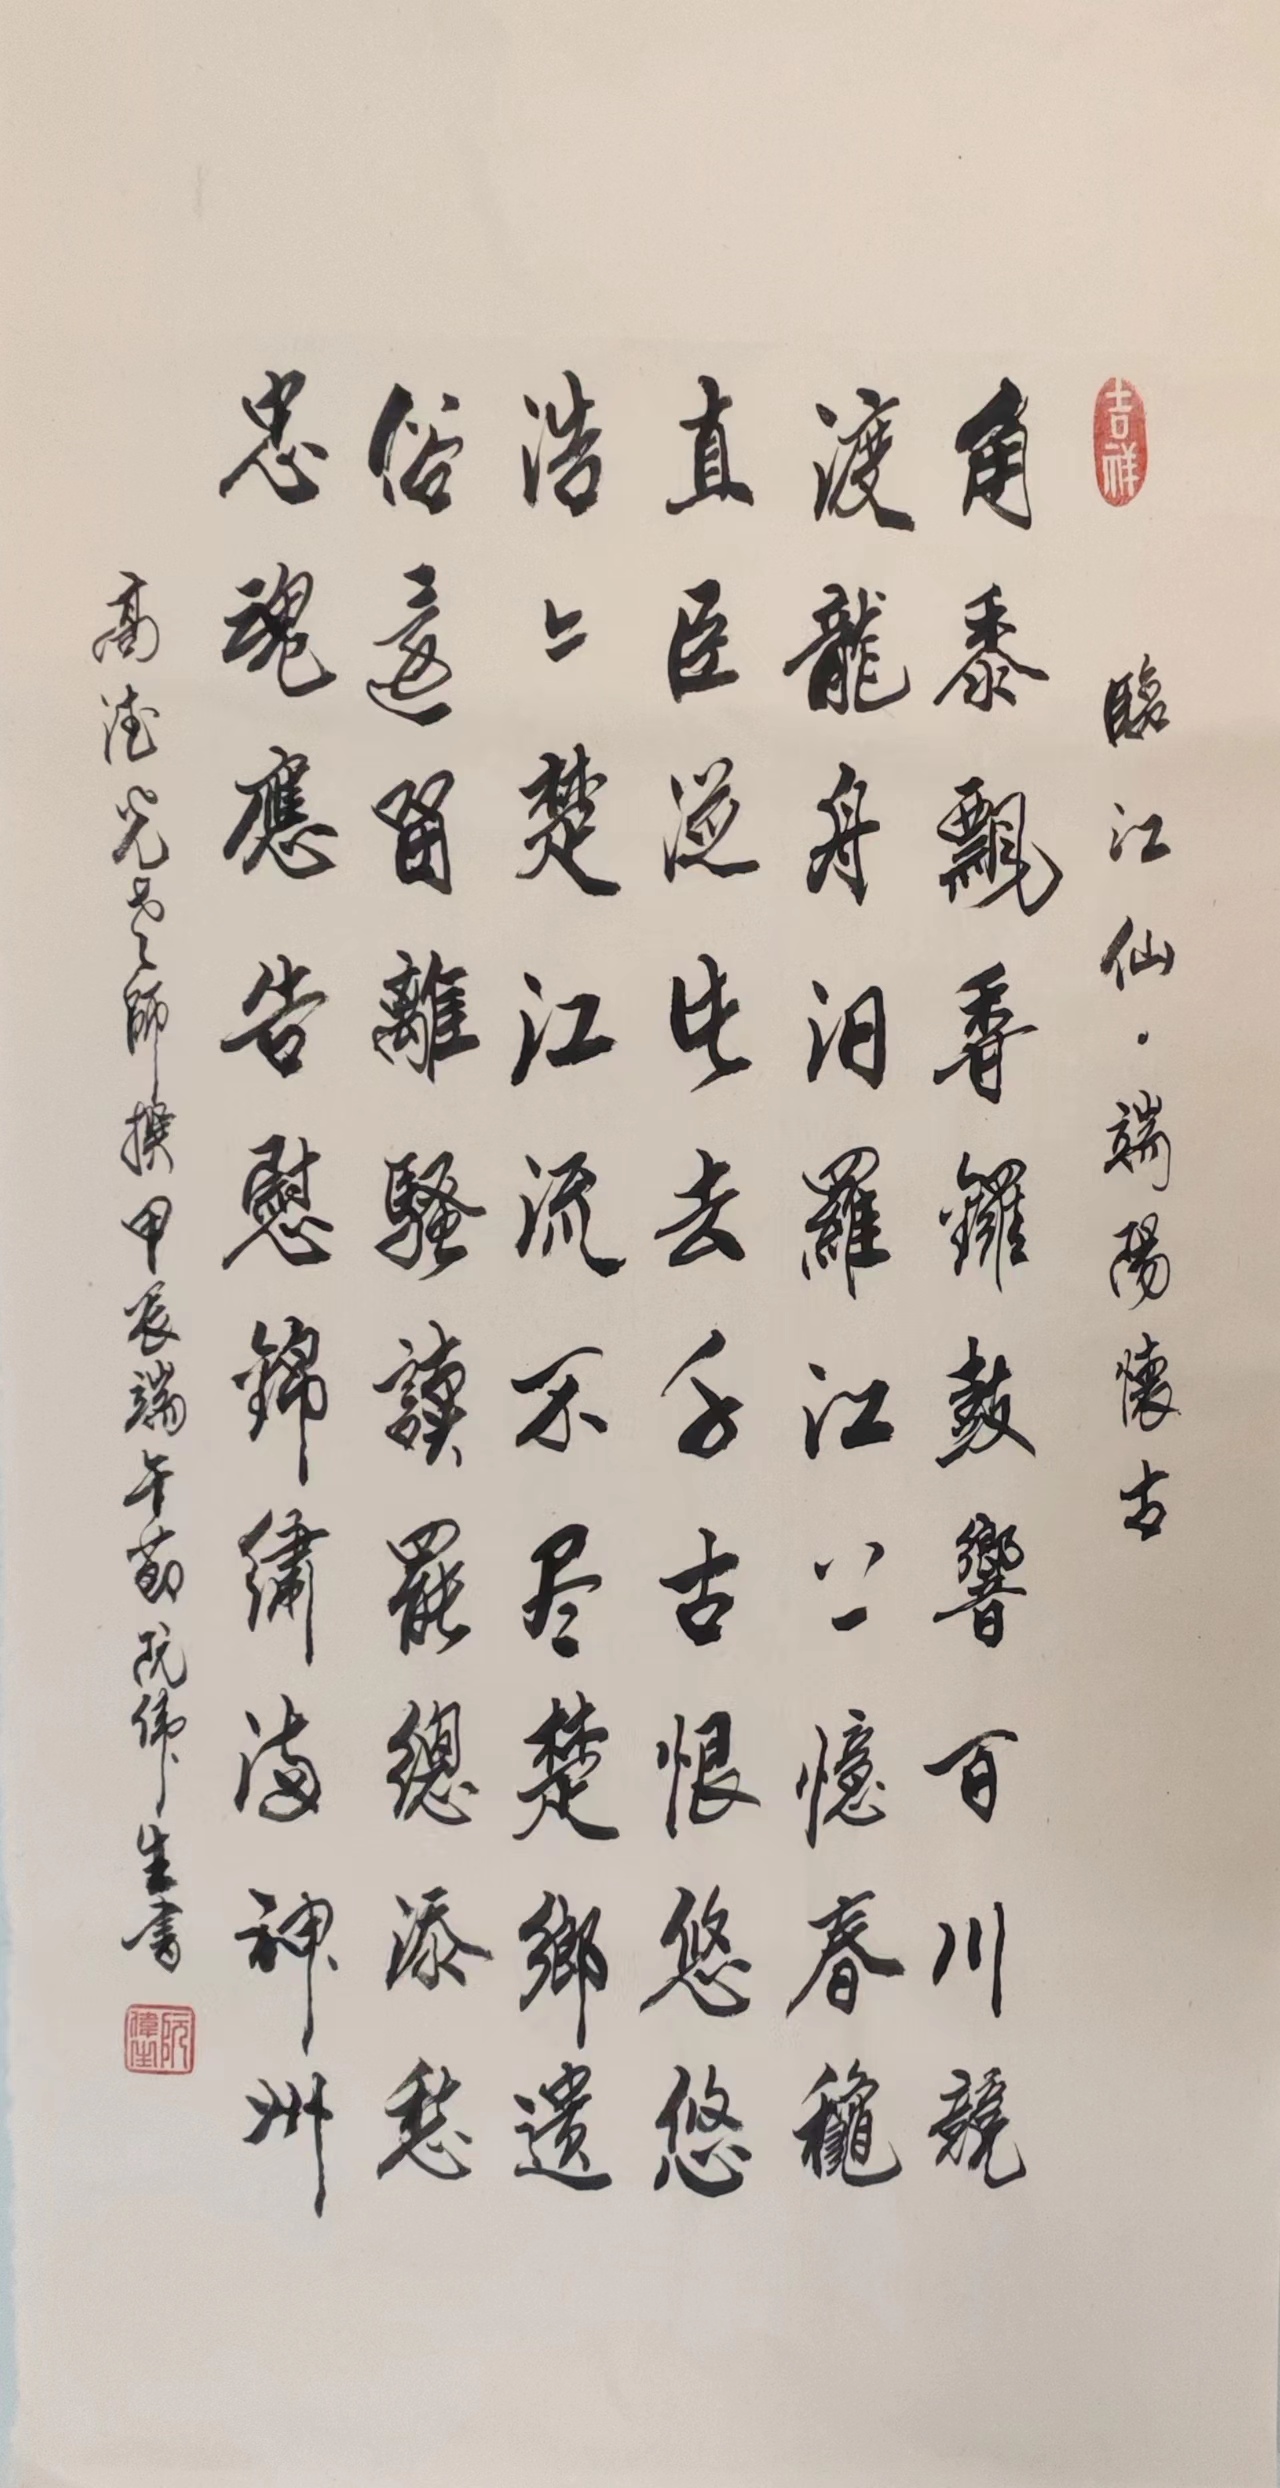 吉祥
臨江仙·端陽懷古
角黍飄香鑼鼓響百川競
渡龍舟汨羅江上憶春穐
直臣從此去千古恨悠悠
浩浩楚江流不尽楚鄉遺
俗還留離騷讀罷總添愁
忠魂應告慰錦繡滿神州
高德光老師撰甲辰端午節阮偉生書
阮偉生